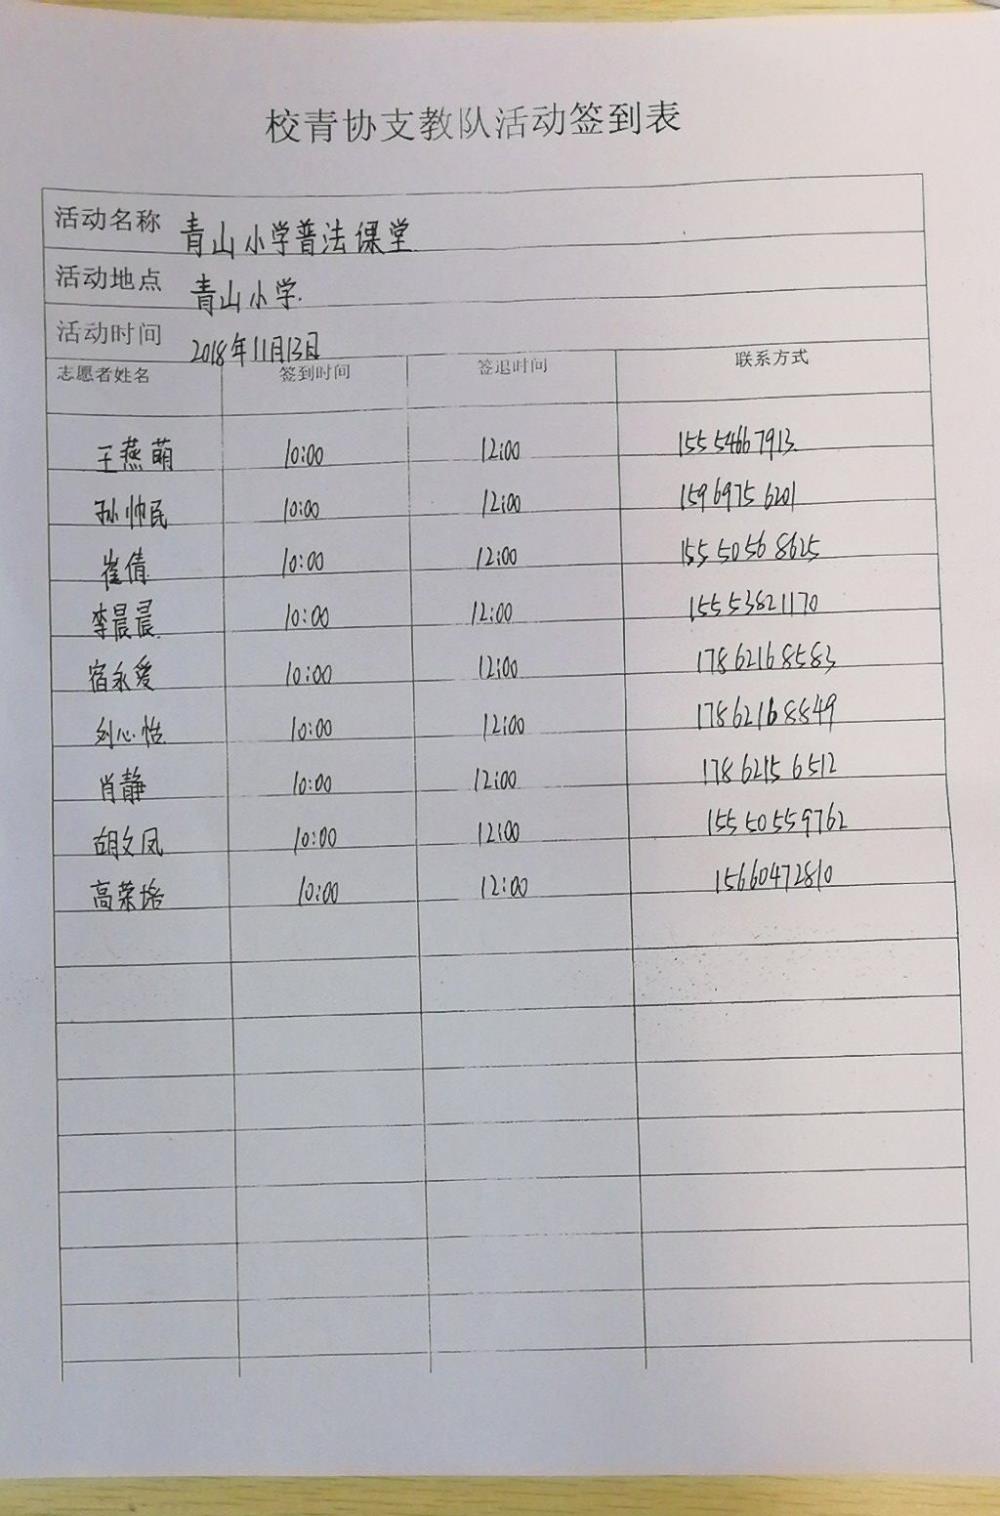 校青协支教队活动签到表
活动名称 青山小学普法课堂
活动地点 青山小学.
活动时间 2018年11月13日
志愿者姓名 签到时间 签退时间 联系方式
王燕萌 10:00 12:00 155 5466 7913.
孙帅民 10:00 12:00 159 6975 6201
崔倩 10:00 12:00 155 5056 8625
李晨晨 10:00 12:00 15553821170
宿永爱 10:00 12:00 178 6216 8583
刘心怡 10:00 12:00 178 6216 8849
肖静 10:00 12:00 178 6215 6512
胡文凤 10:00 12:00 155 5055 9762
高荣 10:00 12:00 15660472810